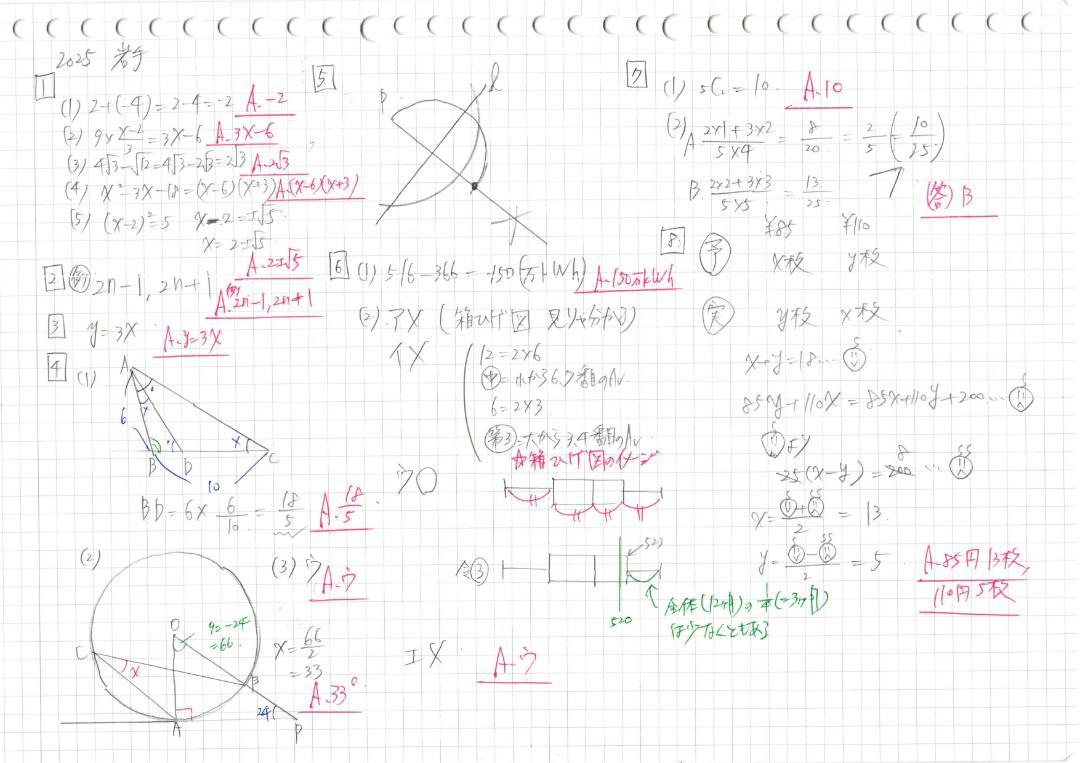 2025 岩手
1
(1) 2+(-4)=2-4=-2 A.-2
(2) 9×(x-2)/3=3x-6 A.3x-6
(3) 4√3-√12=4√3-2√3=2√3 A.2√3
(4) x²-3x-18=(x-6)(x+3) A.(x-6)(x+3)
(5) (x-2)²=5 x-2=±√5
x=2±√5
A.2±√5
2 (例) 2n-1, 2n+1
A.(例)2n-1, 2n+1
3 y=3x A.y=3x
4 (1)
A
6
x
x
B D C
10
BD=6×6/10=18/5 A.18/5
(2)
O
90-24
=66
C
x
B
24
A P
x=66/2
=33
A.33°
(3) ウ
A.ウ
5
P
l
6 (1) 516-366=150(万kWh) A.150万kWh
(2) アX (箱ひげ図 見りゃ分かる)
イX
12=2×6
㊥=小から6,7番目のAv.
6=2×3
第3=大から3,4番目のAv.
☆箱ひげ図のイメージ
ウ○
③
523
520
全体(12ヶ月)の1/4(=3ヶ月)
は少なくともある
エX A.ウ
7 (1) 5C1=10. A.10
(2) A (2×1+3×2)/(5×4)=8/20=2/5(=10/25)
B. (2×2+3×3)/(5×5)=13/25
(答) B
8
¥85 ¥110
予 x枚 y枚
実 y枚 x枚
x+y=18…
85y+110x=85x+110y+200…
より
25(x-y)=200…
8
x= /2 =13
y= /2 =5
A.85円13枚,
110円5枚